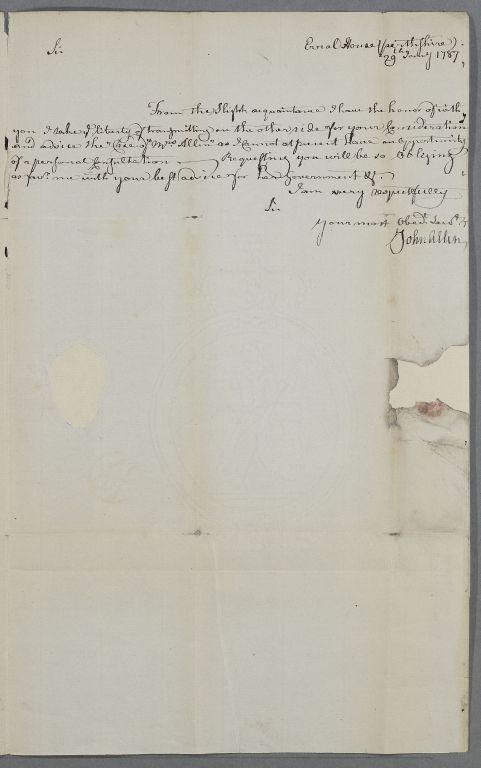 Sir
Ernal House (perthshire)
29th Jan:y 1787
From the Slight acquaintance I have the honor of with
you I take ye liberty of transmitting on the other side for your Consideration
and advice the Case of Mrs Allen as I cannot at present have an opportunity
of a personal Consultation — Requesting you will be so Obliging
as favr. me with your best advice for her Government &c.
I am very respectfully
Sir
Your most Obedt. Servt.
John Allen